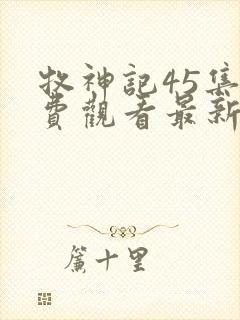 牧神記45集
費觀看最新
簾十里